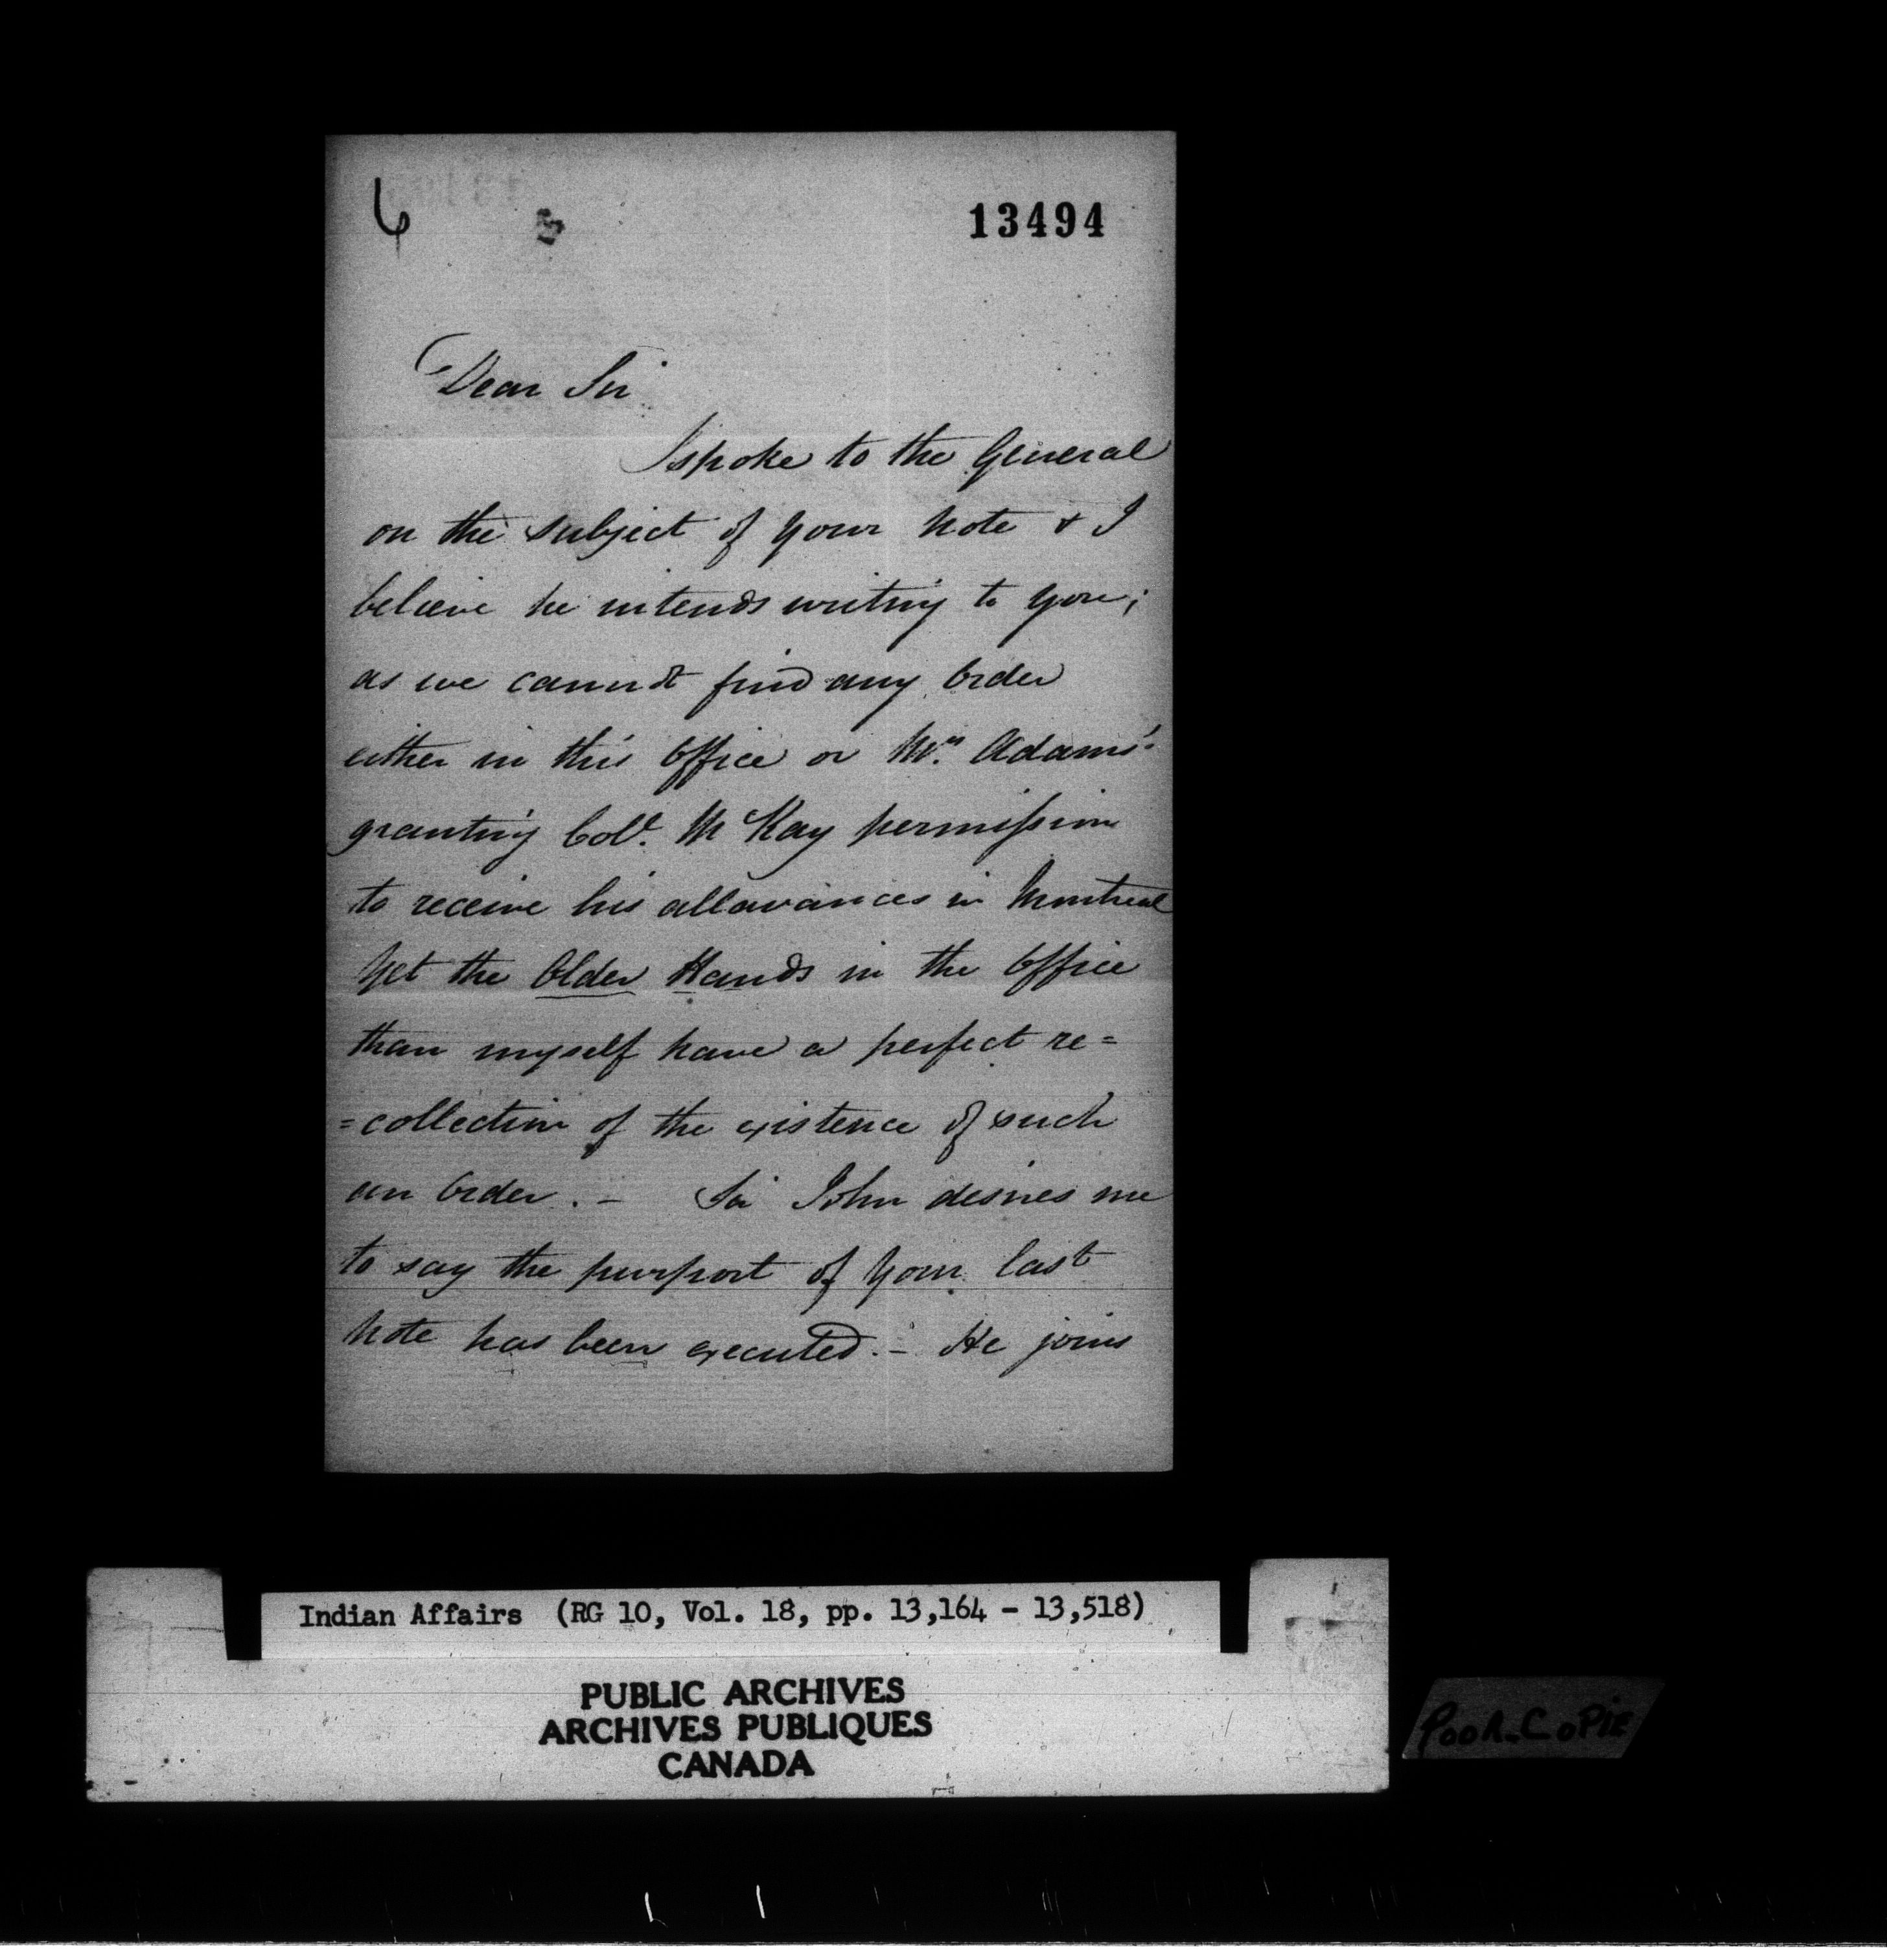 6
13494
Dear Sir
I spoke to the General
on the subject of your note & I
believe he intends writing to you;
as we cannot find any Order
either in this Office or Mr. Adams'
granting Col. McKay permission
to receive his allowances in Montreal
Yet the Older Hands in the Office
than myself have a perfect re=
=collection of the existence of such
an Order. - Sir John desires me
to say the purport of your last
Note has been executed. - He joins
Indian Affairs (RG 10, Vol. 18, pp. 13,164 - 13,518)
PUBLIC ARCHIVES
ARCHIVES PUBLIQUES
CANADA
POOR-COPIE